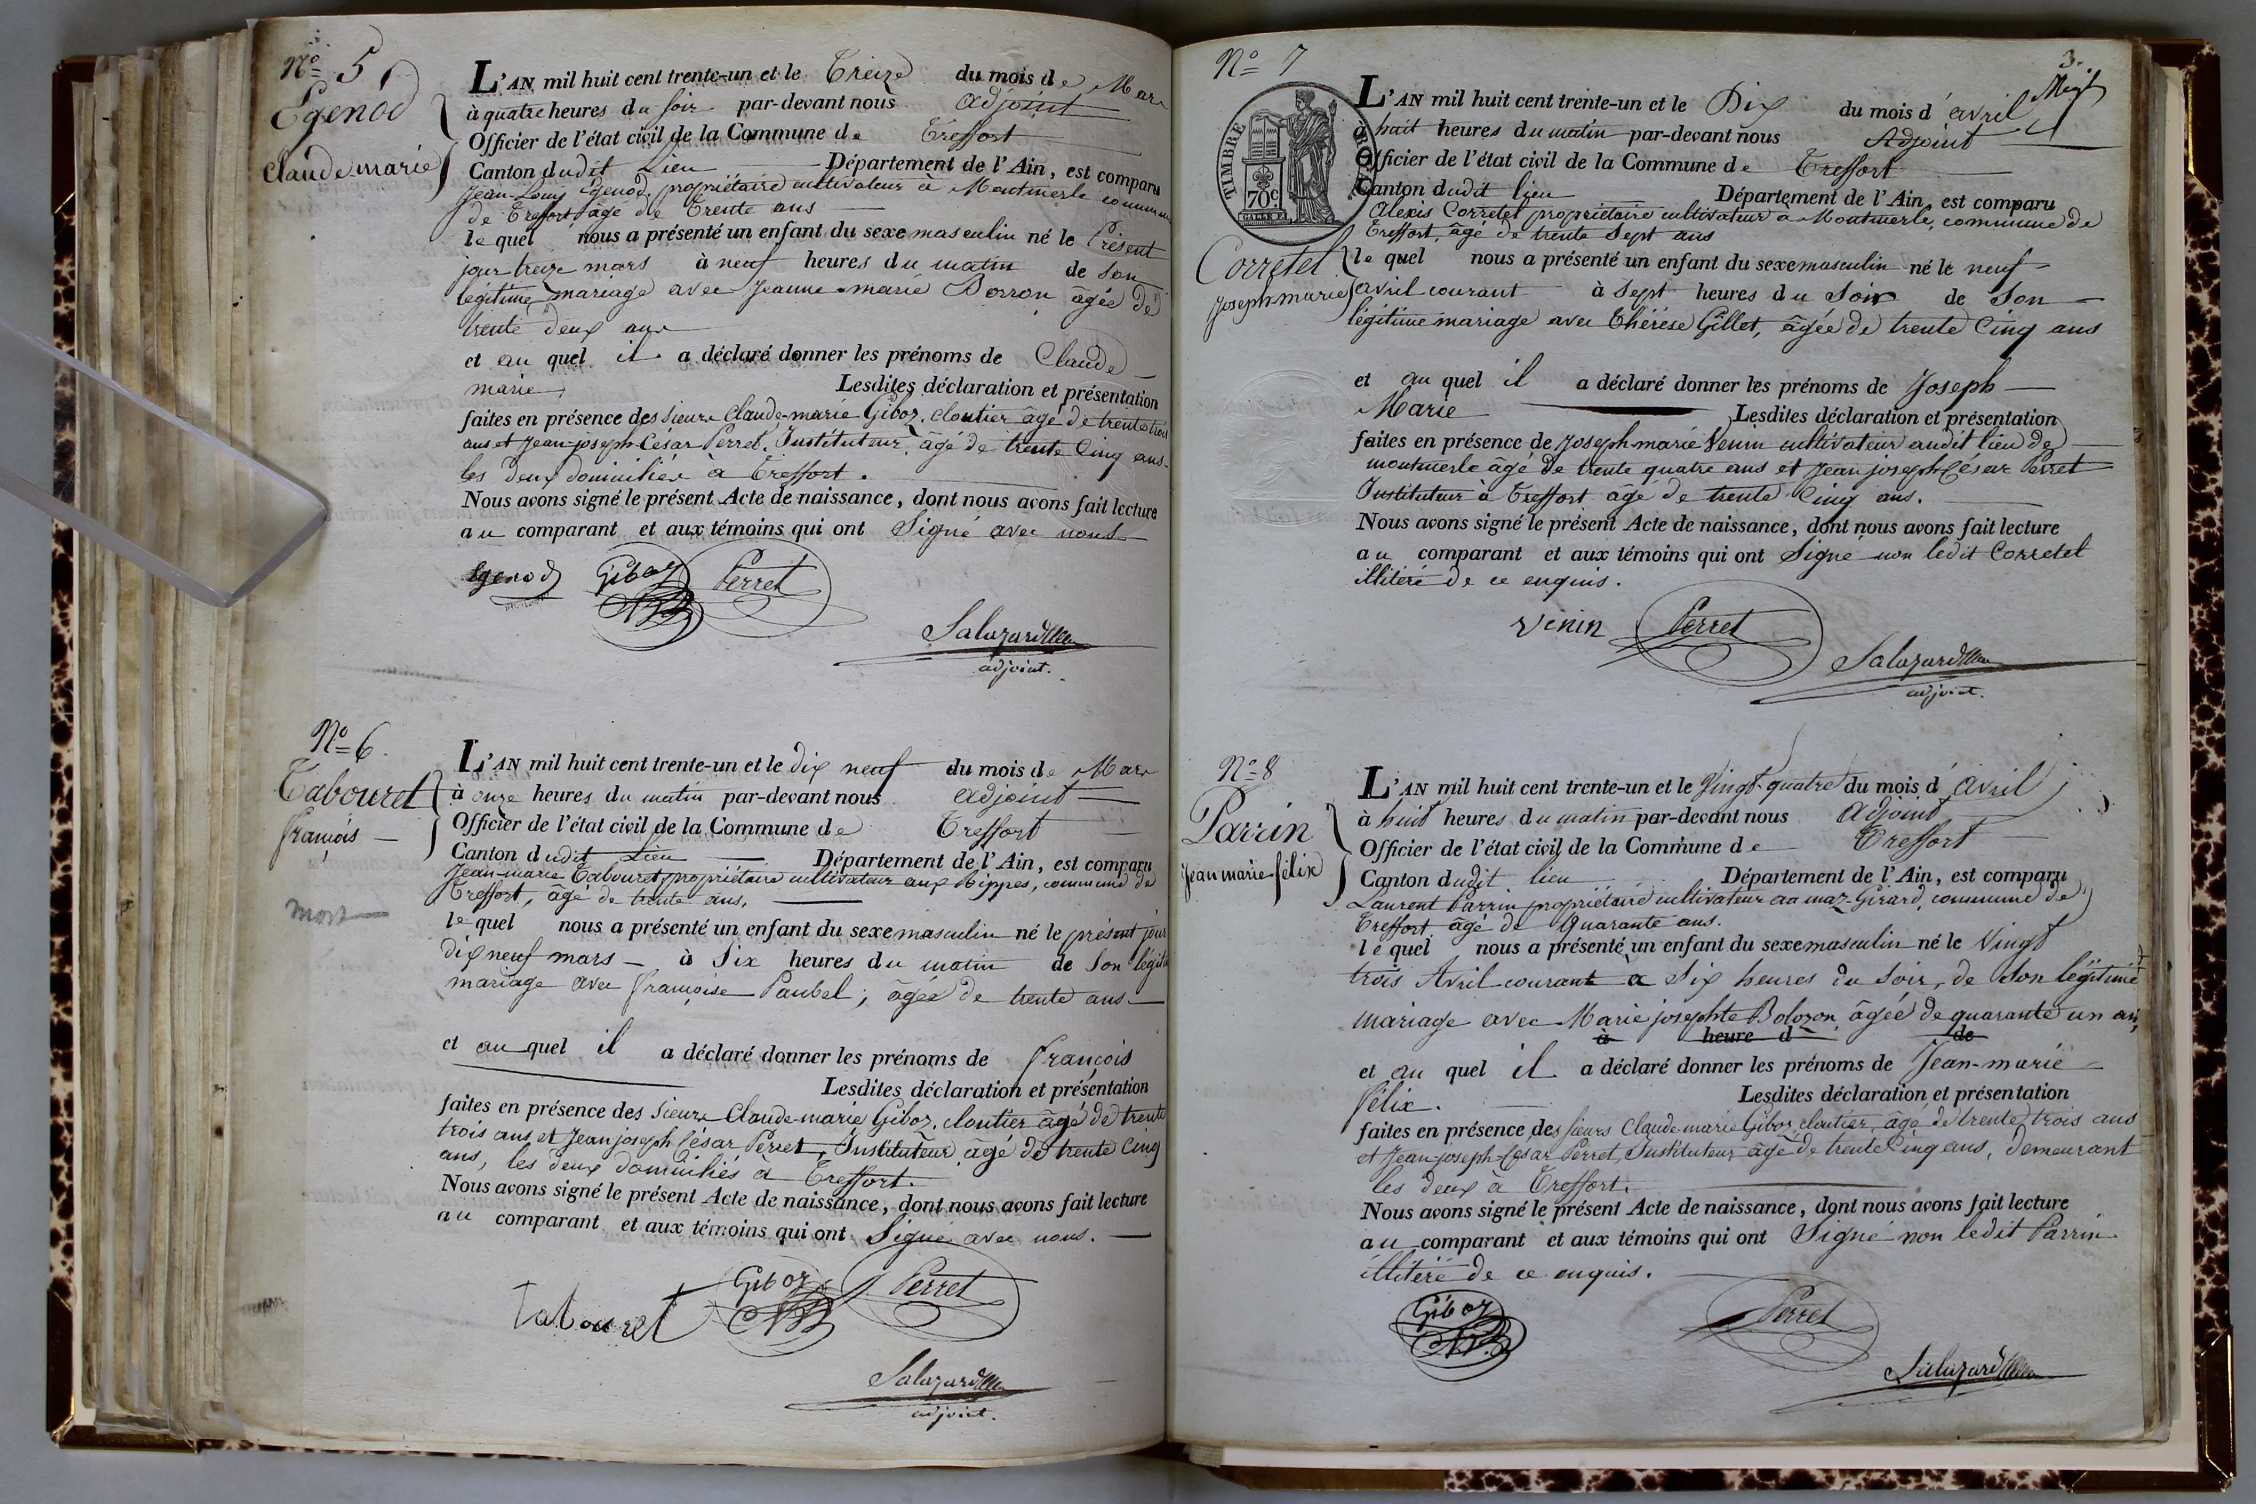 N° 5
Egenod
Claude marie
L'AN mil huit cent trente-un et le Treize du mois de Mars
à quatre heures du soir par-devant nous adjoint
Officier de l'état civil de la Commune de Treffort
Canton dudit Lieu Département de l'Ain, est comparu
Jean-Louis Egenod, propriétaire cultivateur à Montmerle commune
de Treffort âgé de trente ans
lequel nous a présenté un enfant du sexe masculin né le Présent
jour treize mars à neuf heures du matin de son
légitime mariage avec Jeanne-marie Borron âgée de
trente deux ans
et au quel il a déclaré donner les prénoms de Claude
marie Lesdites déclaration et présentation
faites en présence des sieurs Claude-marie Giboz, cloutier âgé de trente trois
ans et Jean-joseph César Perret, Instituteur, âgé de trente Cinq ans
les deux domiciliés à Treffort.
Nous avons signé le présent Acte de naissance, dont nous avons fait lecture
au comparant et aux témoins qui ont Signé avec nous
Egenod Giboz Perret
Salazard
adjoint.
N° 6.
Tabouret
françois
mort
L'AN mil huit cent trente-un et le dix neuf du mois de Mars
à onze heures du matin par-devant nous adjoint
Officier de l'état civil de la Commune de Treffort
Canton dudit Lieu Département de l'Ain, est comparu
Jean-marie Tabouret, propriétaire cultivateur aux Rippes, commune de
Treffort, âgé de trente ans,
lequel nous a présenté un enfant du sexe masculin né le présent jour
dix neuf mars à Six heures du matin de Son légit
mariage avec françoise Paubel, âgée de trente ans
et au quel il a déclaré donner les prénoms de françois
Lesdites déclaration et présentation
faites en présence des sieurs Claude-marie Giboz, cloutier âgé de trente
trois ans et Jean joseph César Perret, Instituteur âgé de trente Cinq
ans, les deux domiciliés à Treffort.
Nous avons signé le présent Acte de naissance, dont nous avons fait lecture
au comparant et aux témoins qui ont Signé avec nous.
Tabouret Giboz Perret
Salazard
adjoint.
N° 7
3.
TIMBRE ROYAL
70c
Corretel
Joseph marie
L'AN mil huit cent trente-un et le Dix du mois d'avril
à huit heures du matin par-devant nous Adjoint
Officier de l'état civil de la Commune de Treffort
Canton dudit lieu Département de l'Ain, est comparu
Alexis Corretel propriétaire cultivateur à Montmerle, commune de
Treffort, âgé de trente Sept ans
lequel nous a présenté un enfant du sexe masculin né le neuf
avril courant à Sept heures du Soir de Son
légitime mariage avec Thérèse Gillet, âgée de trente Cinq ans
et au quel il a déclaré donner les prénoms de Joseph
Marie Lesdites déclaration et présentation
faites en présence de Joseph marie Venin cultivateur audit lieu de
montmerle âgé de trente quatre ans et Jean joseph César Perret
Instituteur à Treffort âgé de trente Cinq ans.
Nous avons signé le présent Acte de naissance, dont nous avons fait lecture
au comparant et aux témoins qui ont Signé non ledit Corretel
illitéré de ce enquis.
Venin Perret
Salazard
adjoint.
N° 8
Parrin
Jean marie félix
L'AN mil huit cent trente-un et le Vingt-quatre du mois d'avril
à huit heures du matin par-devant nous Adjoint
Officier de l'état civil de la Commune de Treffort
Canton dudit lieu Département de l'Ain, est comparu
Laurent Parrin propriétaire cultivateur au maz-Girard, commune de
Treffort âgé de Quarante ans.
lequel nous a présenté un enfant du sexe masculin né le Vingt
trois Avril courant à Six heures du Soir, de Son légitime
mariage avec Marie josephte Bolozon âgée de quarante un an,
à heure d de
et au quel il a déclaré donner les prénoms de Jean-marie
félix. Lesdites déclaration et présentation
faites en présence des sieurs Claude marie Giboz cloutier, âgé de trente trois ans
et Jean-joseph-César Perret, Instituteur âgé de trente Cinq ans, demeurant
les deux à Treffort.
Nous avons signé le présent Acte de naissance, dont nous avons fait lecture
au comparant et aux témoins qui ont Signé non ledit Parrin
illitéré de ce enquis.
Giboz Perret
Salazard